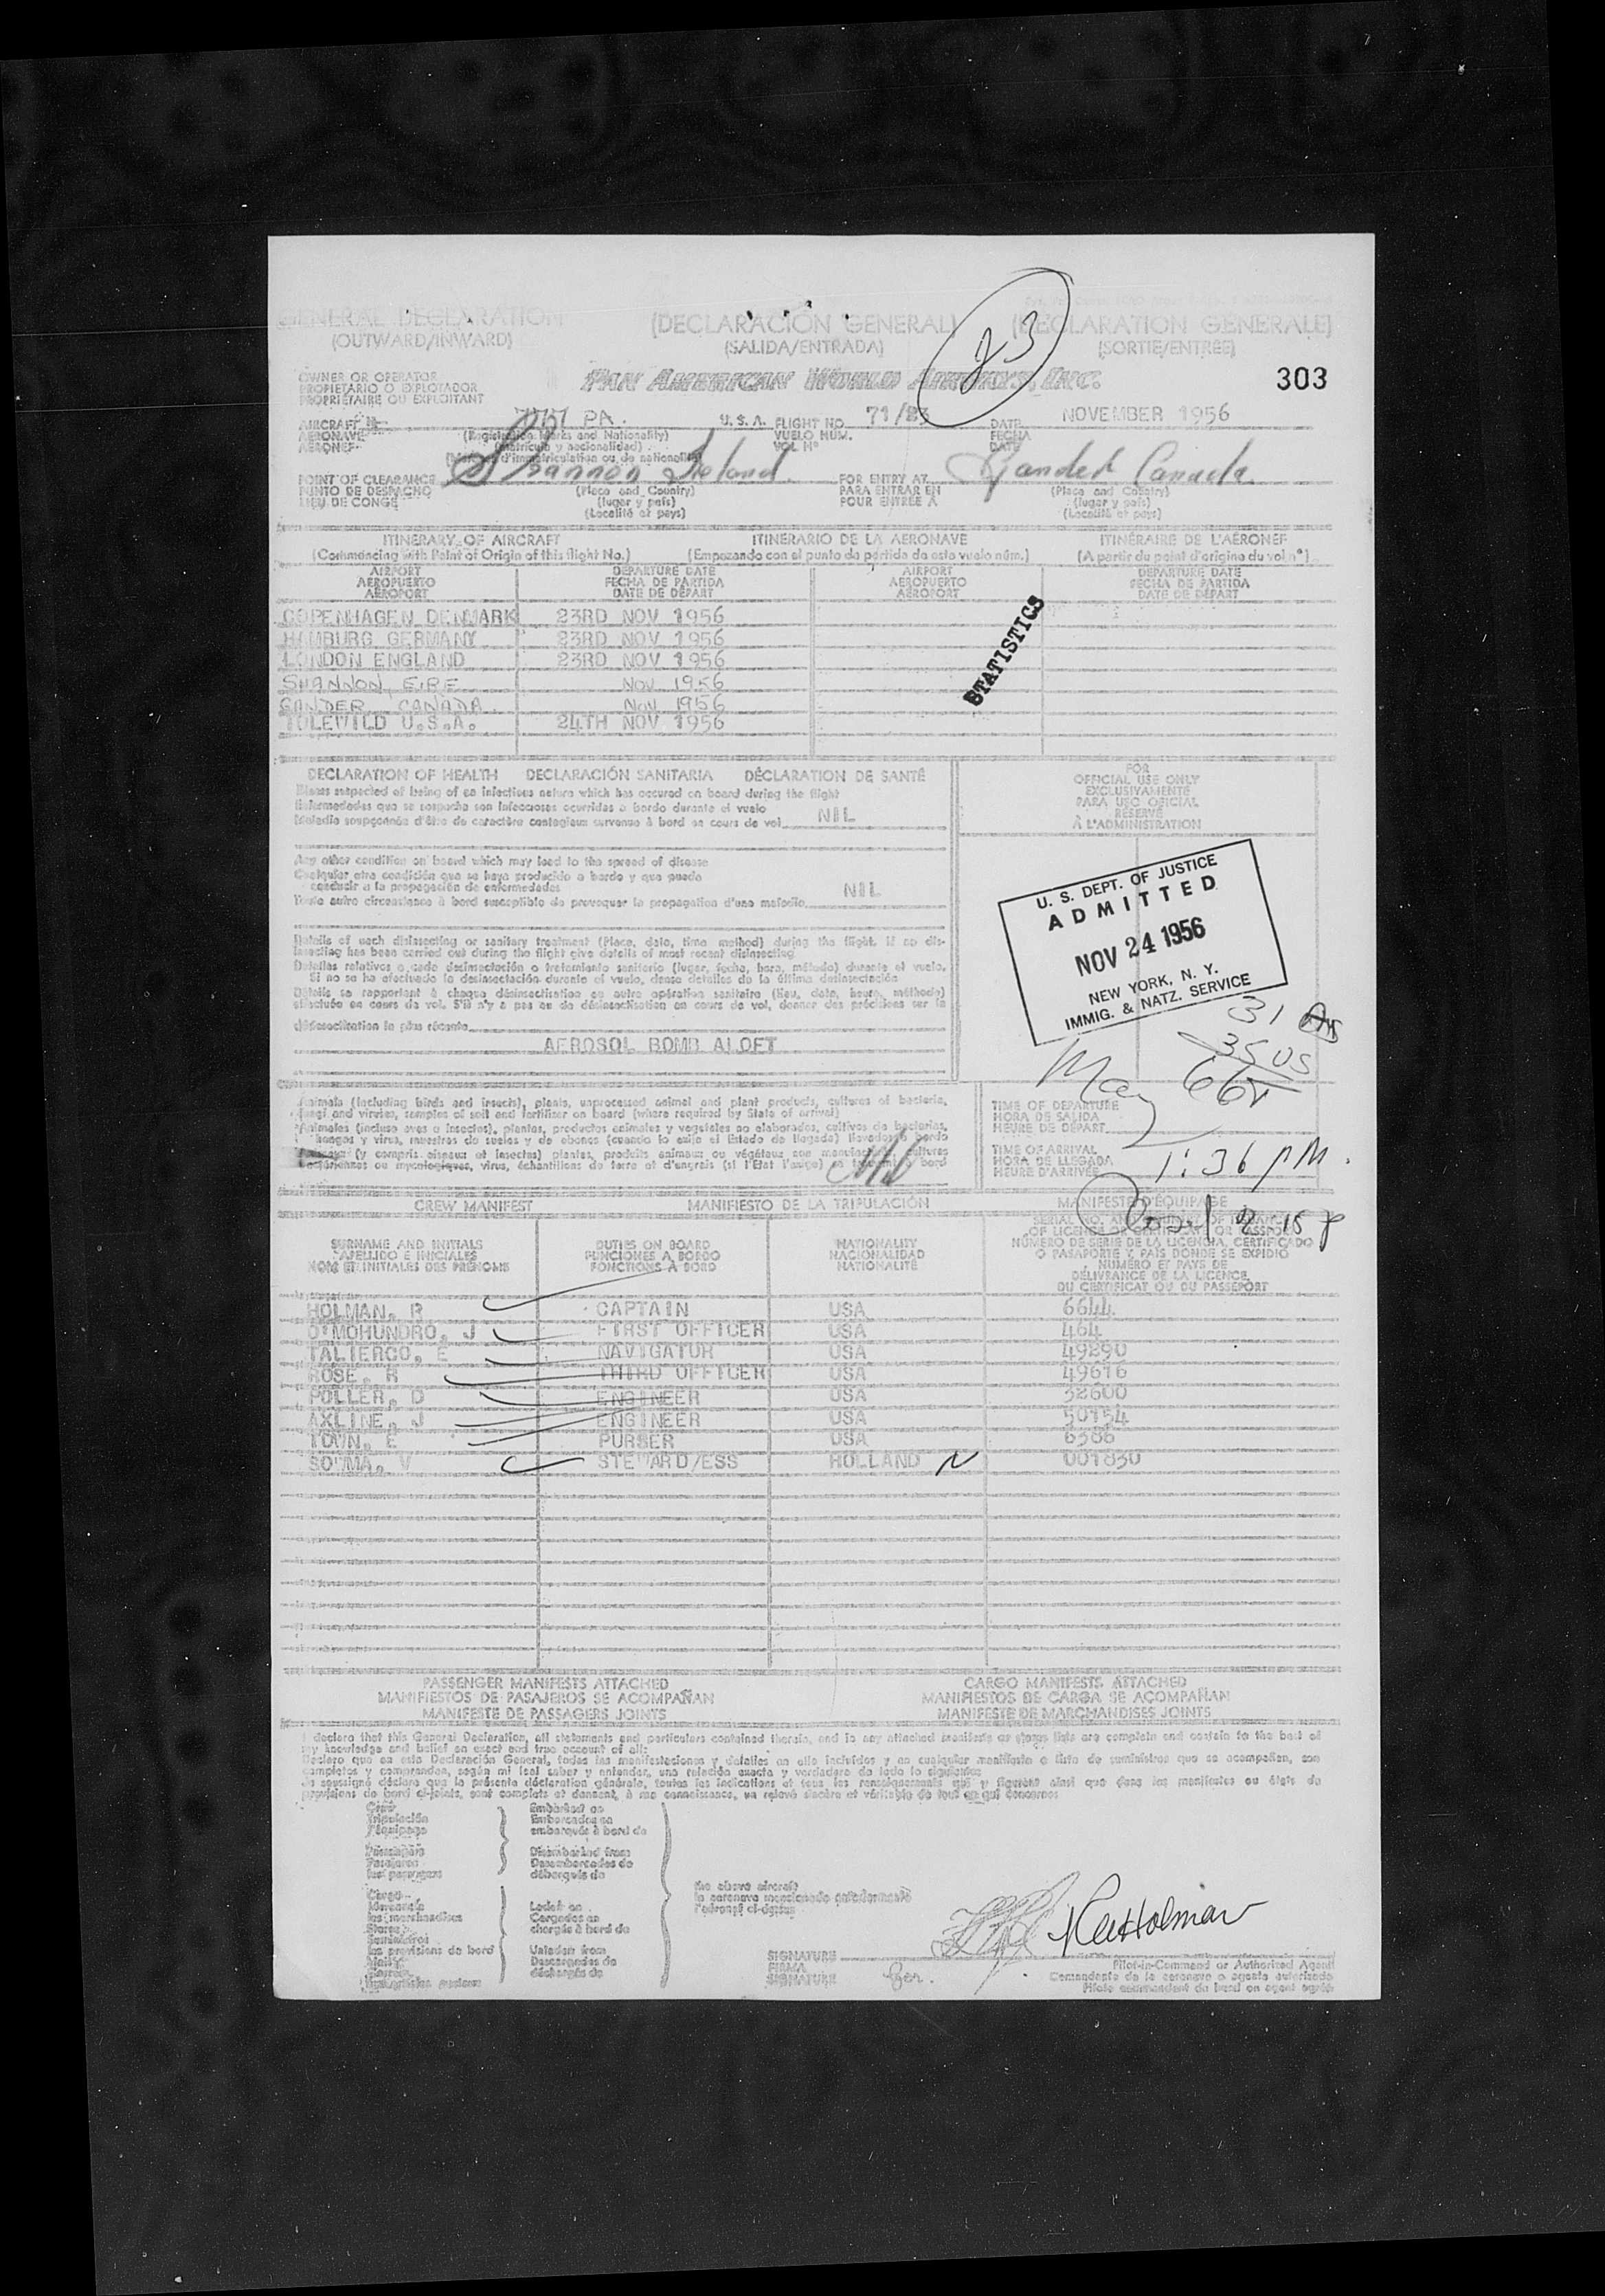 GENERAL DECLARATION (DECLARACIÓN GENERAL) (DECLARATION GENERALE)
(OUTWARD/INWARD) (SALIDA/ENTRADA) (SORTIE/ENTRÉE)
23
303
OWNER OR OPERATOR
PROPIETARIO O EXPLOTADOR
PROPRIÉTAIRE OU EXPLOITANT
PAN AMERICAN WORLD AIRWAYS, INC.
AIRCRAFT PA. U.S.A. FLIGHT NO. 71/83 DATE NOVEMBER 1956
AERONAVE (Registration Marks and Nationality) VUELO NÚM. FECHA
AÉRONEF (Matrícula y nacionalidad) VOL Nº DATE
(Marques d'immatriculation ou de nationalité)
POINT OF CLEARANCE Shannon Ireland. FOR ENTRY AT Gander Canada.
PUNTO DE DESPACHO (Place and Country) PARA ENTRAR EN (Place and Country)
LIEU DE CONGÉ (lugar y país) POUR ENTRÉE À (lugar y país)
(Localité et pays) (Localité et pays)
ITINERARY OF AIRCRAFT ITINERARIO DE LA AERONAVE ITINÉRAIRE DE L'AÉRONEF
(Commencing with Point of Origin of this flight No.) (Empezando con el punto de partida de este vuelo núm.) (A partir du point d'origine du vol nº)
AIRPORT DEPARTURE DATE AIRPORT DEPARTURE DATE
AEROPUERTO FECHA DE PARTIDA AEROPUERTO FECHA DE PARTIDA
AÉROPORT DATE DE DÉPART AÉROPORT DATE DE DÉPART
COPENHAGEN DENMARK 23RD NOV 1956
HAMBURG GERMANY 23RD NOV 1956
LONDON ENGLAND 23RD NOV 1956
SHANNON EIRE NOV 1956
GANDER CANADA NOV 1956
IDLEWILD U.S.A. 24TH NOV 1956
STATISTICS
DECLARATION OF HEALTH DECLARACIÓN SANITARIA DÉCLARATION DE SANTÉ
Illness suspected of being of an infectious nature which has occured on board during the flight
Enfermedades que se sospecha son infecciosas ocurridas a bordo durante el vuelo
Maladie soupçonnée d'être de caractère contagieux survenue à bord en cours de vol NIL
Any other condition on board which may lead to the spread of disease
Cualquier otra condición que se haya producido a bordo y que pueda
conducir a la propagación de enfermedades
Toute autre circonstance à bord susceptible de provoquer la propagation d'une maladie NIL
Details of each disinsecting or sanitary treatment (Place, date, time method) during the flight. If no dis-
insecting has been carried out during the flight give details of most recent disinsecting
Detalles relativos a cada desinsectación o tratamiento sanitario (lugar, fecha, hora, método) durante el vuelo.
Si no se ha efectuado la desinsectación durante el vuelo, dense detalles de la última desinsectación
Détails se rapportant à chaque désinsectisation ou autre opération sanitaire (lieu, date, heure, méthode)
effectuée en cours de vol. S'il n'y a pas eu de désinsectisation en cours de vol, donner des précisions sur la
désinsectisation la plus récente
AEROSOL BOMB ALOFT
FOR
OFFICIAL USE ONLY
EXCLUSIVAMENTE
PARA USO OFICIAL
RÉSERVÉ
À L'ADMINISTRATION
U. S. DEPT. OF JUSTICE
ADMITTED
NOV 24 1956
NEW YORK, N. Y.
IMMIG. & NATZ. SERVICE
31
35 US
66
Animals (including birds and insects), plants, unprocessed animal and plant products, cultures of bacteria,
fungi and viruses, samples of soil and fertilizer on board (where required by State of arrival)
Animales (incluso aves e insectos), plantas, productos animales y vegetales no elaborados, cultivos de bacterias,
hongos y virus, muestras de suelos y de abonos (cuando lo exija el Estado de llegada) llevados a bordo
Animaux (y compris oiseaux et insectes) plantes, produits animaux ou végétaux non manufacturés, cultures
bactériennes ou mycologiques, virus, échantillons de terre et d'engrais (si l'État l'exige) à bord
Nil
TIME OF DEPARTURE
HORA DE SALIDA
HEURE DE DÉPART
TIME OF ARRIVAL
HORA DE LLEGADA
HEURE D'ARRIVÉE
1:36 PM.
CREW MANIFEST MANIFIESTO DE LA TRIPULACIÓN MANIFESTE D'ÉQUIPAGE
SURNAME AND INITIALS DUTIES ON BOARD NATIONALITY
APELLIDO E INICIALES FUNCIONES A BORDO NACIONALIDAD
NOM ET INITIALES DES PRÉNOMS FONCTIONS À BORD NATIONALITÉ
NÚMERO DE SERIE DE LA LICENCIA, CERTIFICADO
O PASAPORTE Y PAÍS DONDE SE EXPIDIÓ
NUMÉRO ET PAYS DE
DÉLIVRANCE DE LA LICENCE,
DU CERTIFICAT OU DU PASSEPORT
HOLMAN, R CAPTAIN USA 6644
O'MOHUNDRO, J FIRST OFFICER USA 464
TALIERCO, E NAVIGATOR USA 49890
ROSE, R THIRD OFFICER USA 49616
PULLER, D ENGINEER USA 32600
AXLINE, J ENGINEER USA 50154
TOWN, E PURSER USA 6386
SOUMA, V STEWARD/ESS HOLLAND N 001830
PASSENGER MANIFESTS ATTACHED CARGO MANIFESTS ATTACHED
MANIFIESTOS DE PASAJEROS SE ACOMPAÑAN MANIFIESTOS DE CARGA SE ACOMPAÑAN
MANIFESTE DE PASSAGERS JOINTS MANIFESTE DE MARCHANDISES JOINTS
I declare that this General Declaration, all statements and particulars contained therein, and in any attached manifests or stores lists are complete and contain to the best of
my knowledge and belief an exact and true account of all:
Declaro que en esta Declaración General, todas las manifestaciones y detalles en ella incluidos y en cualquier manifiesto o lista de suministros que se acompañen, son
completos y comprenden, según mi leal saber y entender, una relación exacta y verdadera de todo lo siguiente:
Je soussigné déclare que la présente déclaration générale, toutes les indications et tous les renseignements qui y figurent ainsi que dans les manifestes ou états de
provisions de bord ci-joints, sont complets et donnent, à ma connaissance, un relevé sincère et véritable de tout ce qui concerne:
Crew Embarked on
Tripulación Embarcados en
l'équipage embarqués à bord de
Passengers Disembarked from
Pasajeros Desembarcados de
les passagers débarqués de
the above aircraft
la aeronave mencionada anteriormente
l'aéronef ci-dessus
Cargo
Mercancía Laden on
les marchandises Cargados en
Stores chargés à bord de
Suministros
les provisions de bord Unladen from
Descargados de
déchargés de
RCHolman
SIGNATURE
FIRMA
SIGNATURE
Pilot-in-Command or Authorized Agent
Comandante de la aeronave o agente autorizado
Pilote commandant de bord ou agent agréé